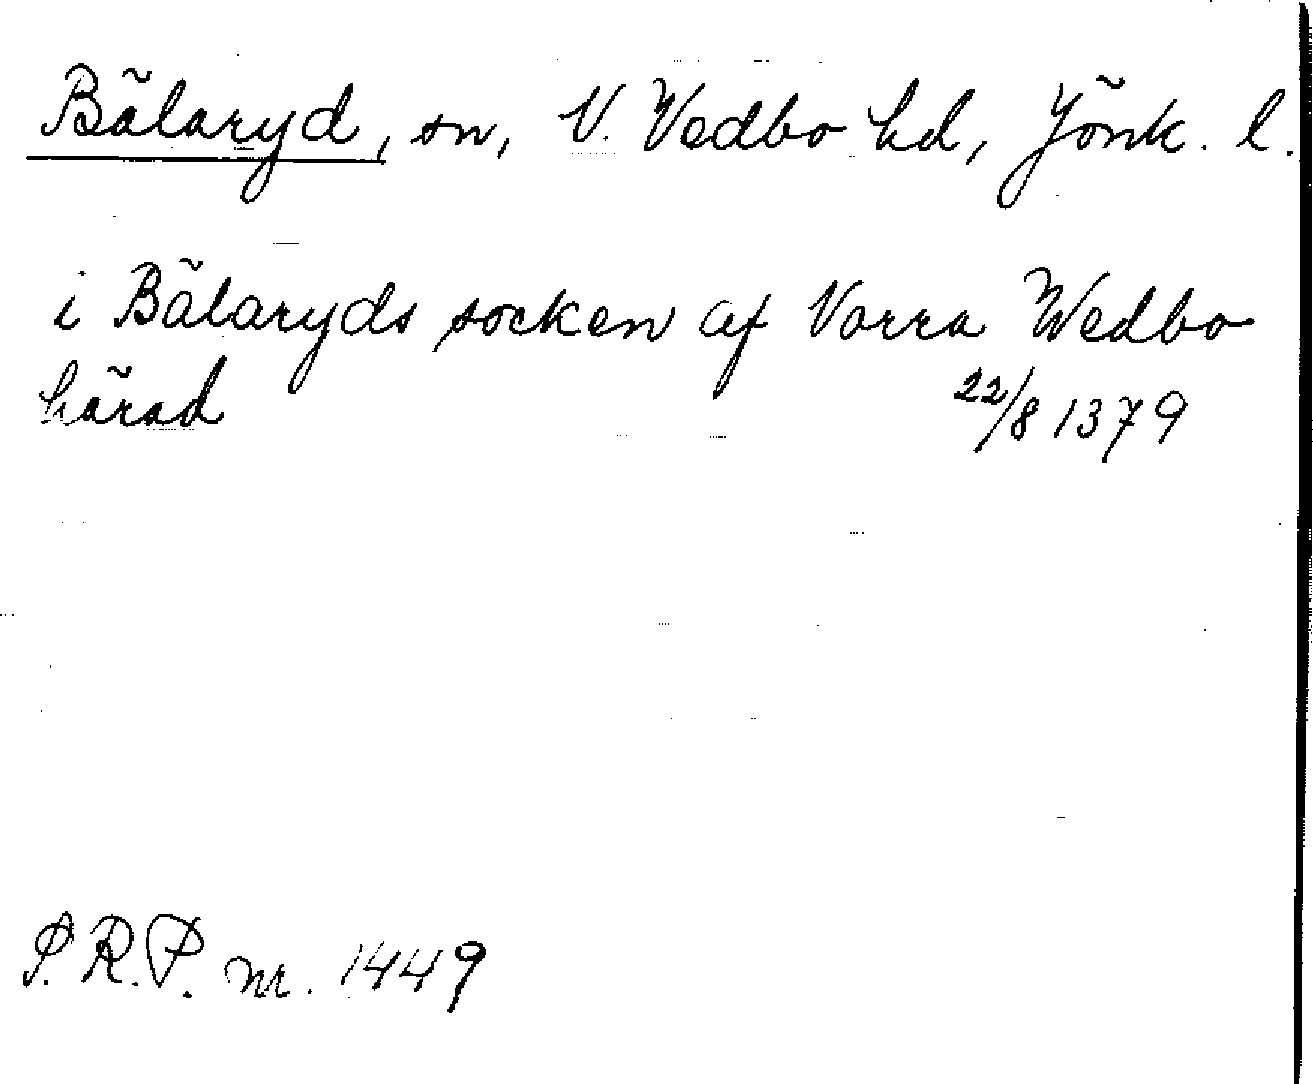 Bälaryd, sn, V. Vedbo hd, Jönk. l.
i Bälaryds socken af Norra Wedbo
härad 22/8 1379
S.R.P. nr. 1449